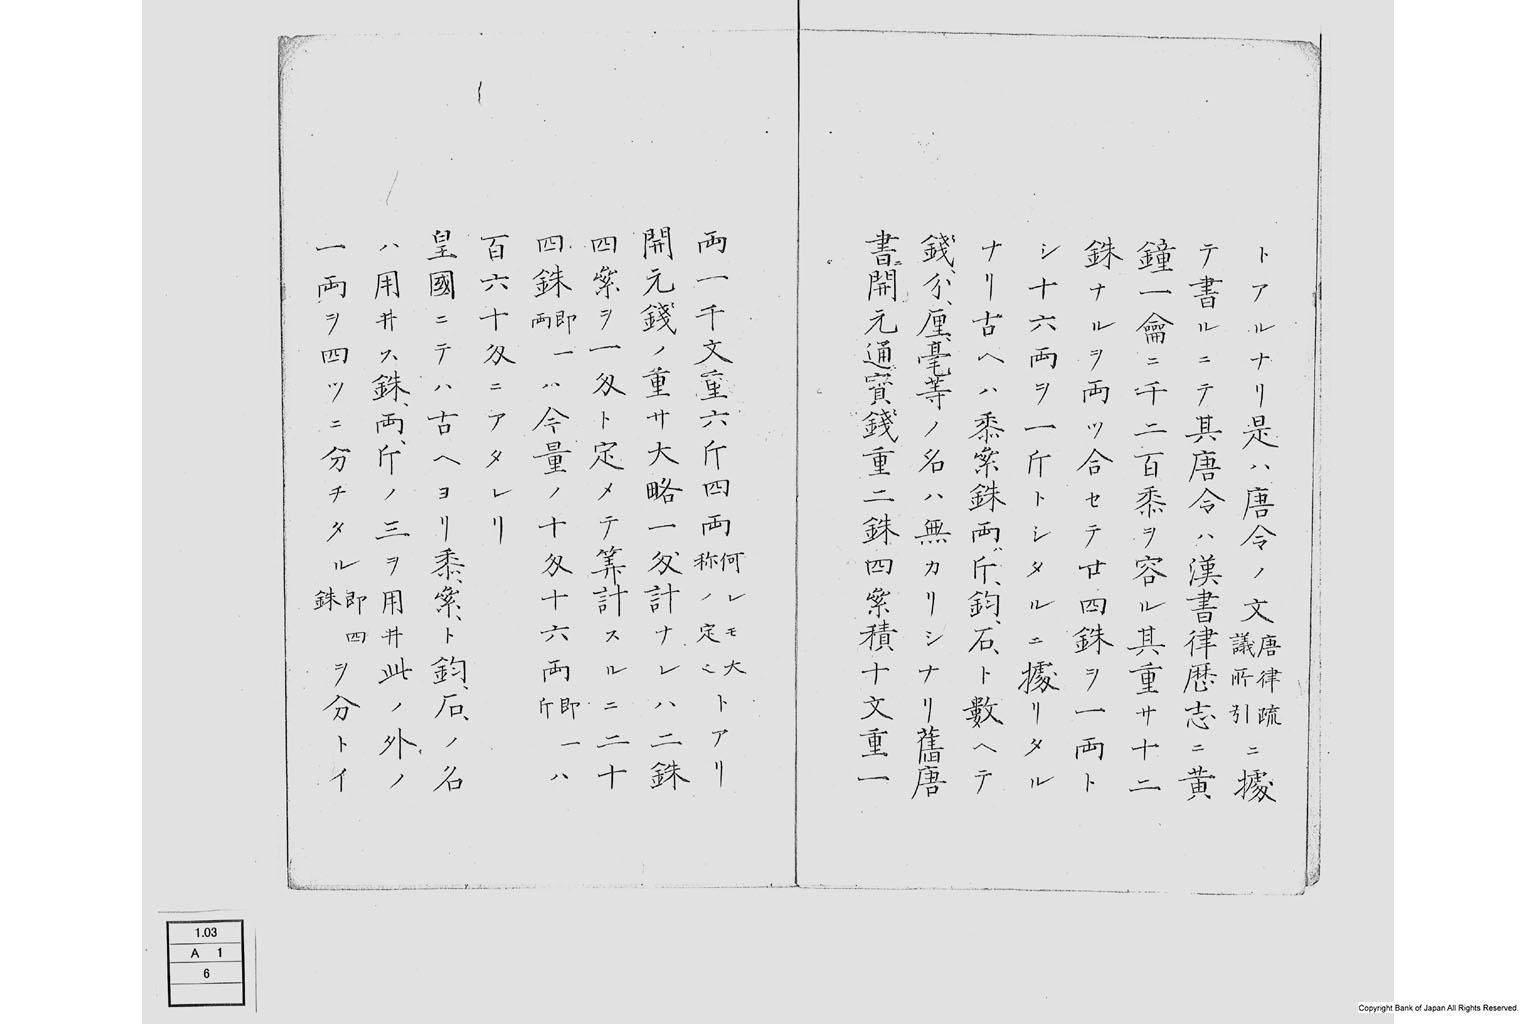 トアルナリ是ハ唐令ノ文唐律疏議所引ニ據
テ書ルニテ其唐令ハ漢書律歴志ニ黄
鐘一龠ニ千二百黍ヲ容ル其重サ十二
銖ナルヲ両ツ合セテ廿四銖ヲ一両ト
シ十六両ヲ一斤トシタルニ據リタル
ナリ古ヘハ黍絫銖両斤、鈞、石、ト數ヘテ
錢、分、厘、毫等ノ名ハ無カリシナリ舊唐
書ニ開元通寳錢重二銖四絫積十文重一
両一千文重六斤四両何レモ大称ノ定ニトアリ
開元錢ノ重サ大略一匁計ナレハ二銖
四絫ヲ一匁ト定メテ筭計スルニ二十
四銖即一両ハ今量ノ十匁十六両即一斤ハ
百六十匁ニアタレリ
皇國ニテハ古ヘヨリ黍、絫、ト鈞、石、ノ名
ハ用井ス銖、両、斤ノ三ヲ用井此ノ外ノ
一両ヲ四ツニ分チタル即四銖ヲ分トイ
1.03
A 1
6
Copyright Bank of Japan All Rights Reserved.